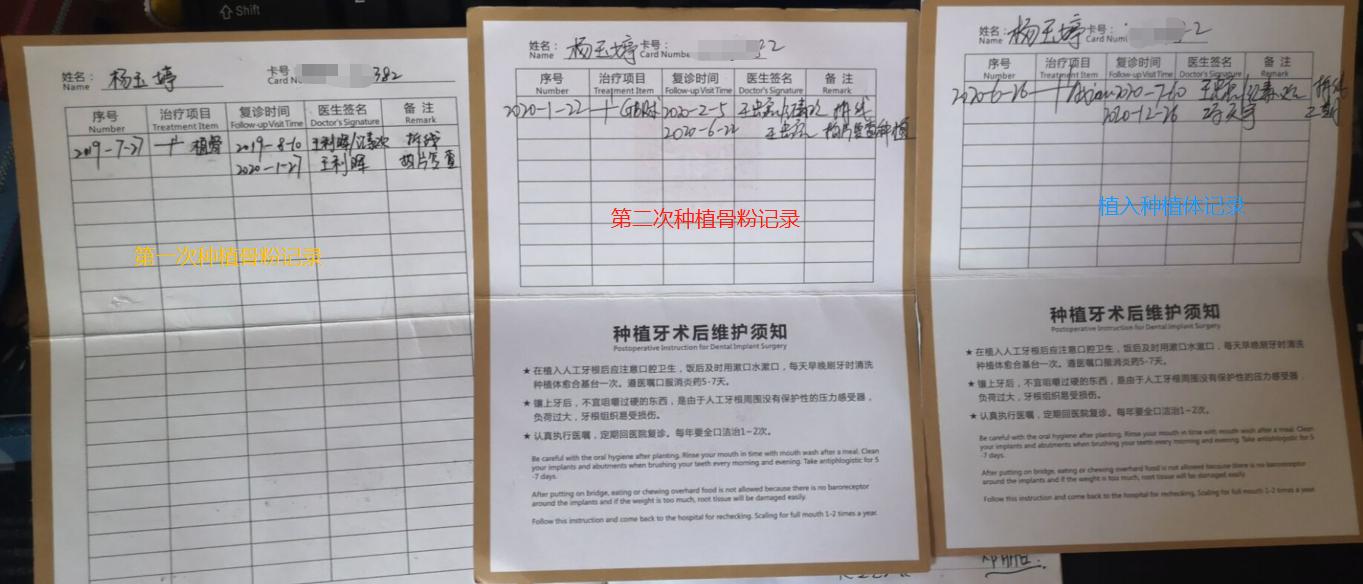 Shift
姓名：
Name
杨玉婷
卡号
382
序号
Number
治疗项目
Treatment Item
复诊时间
Follow-up Visit Time
医生签名
Doctor's Signature
备 注
Remark
2019-7-27 植骨 2019-8-10 王利晖 拆线
2020-1-27 王利晖 拍片复查
第一次种植骨粉记录
姓名：
Name
杨玉婷
卡号：
Card Number
序号
Number
治疗项目
Treatment Item
复诊时间
Follow-up Visit Time
医生签名
Doctor's Signature
备 注
Remark
2020-1-22 2020-2-5 拆线
2020-6-22
第二次种植骨粉记录
种植牙术后维护须知
Postoperative Instruction for Dental Implant Surgery
★ 在植入人工牙根后应注意口腔卫生，饭后及时用漱口水漱口，每天早晚刷牙时清洗
种植体愈合基台一次。遵医嘱口服消炎药5-7天。
★ 镶上牙后，不宜咀嚼过硬的东西，是由于人工牙根周围没有保护性的压力感受器，
负荷过大，牙根组织易受损伤。
★ 认真执行医嘱，定期回医院复诊。每年要全口洁治1~2次。
Be careful with the oral hygiene after planting. Rinse your mouth in time with mouth wash after a meal. Clean
your implants and abutments when brushing your teeth every morning and evening. Take antiphlogistic for 5
-7 days.
After putting on bridge, eating or chewing overhard food is not allowed because there is no baroreceptor
around the implants and if the weight is too much, root tissue will be damaged easily.
Follow this instruction and come back to the hospital for rechecking. Scaling for full mouth 1-2 times a year.
姓名：
Name
杨玉婷
卡号：
序号
Number
治疗项目
Treatment Item
复诊时间
Follow-up Visit Time
医生签名
Doctor's Signature
备 注
Remark
2020-6-26 拆线
2020-12-26
植入种植体记录
种植牙术后维护须知
Postoperative Instruction for Dental Implant Surgery
★ 在植入人工牙根后应注意口腔卫生，饭后及时用漱口水漱口，每天早晚刷牙时清洗
种植体愈合基台一次。遵医嘱口服消炎药5-7天。
★ 镶上牙后，不宜咀嚼过硬的东西，是由于人工牙根周围没有保护性的压力感受器，
负荷过大，牙根组织易受损伤。
★ 认真执行医嘱，定期回医院复诊。每年要全口洁治1~2次。
Be careful with the oral hygiene after planting. Rinse your mouth in time with mouth wash after a meal. Clean
your implants and abutments when brushing your teeth every morning and evening. Take antiphlogistic for 5
-7 days.
After putting on bridge, eating or chewing overhard food is not allowed because there is no baroreceptor
around the implants and if the weight is too much, root tissue will be damaged easily.
Follow this instruction and come back to the hospital for rechecking. Scaling for full mouth 1-2 times a year.